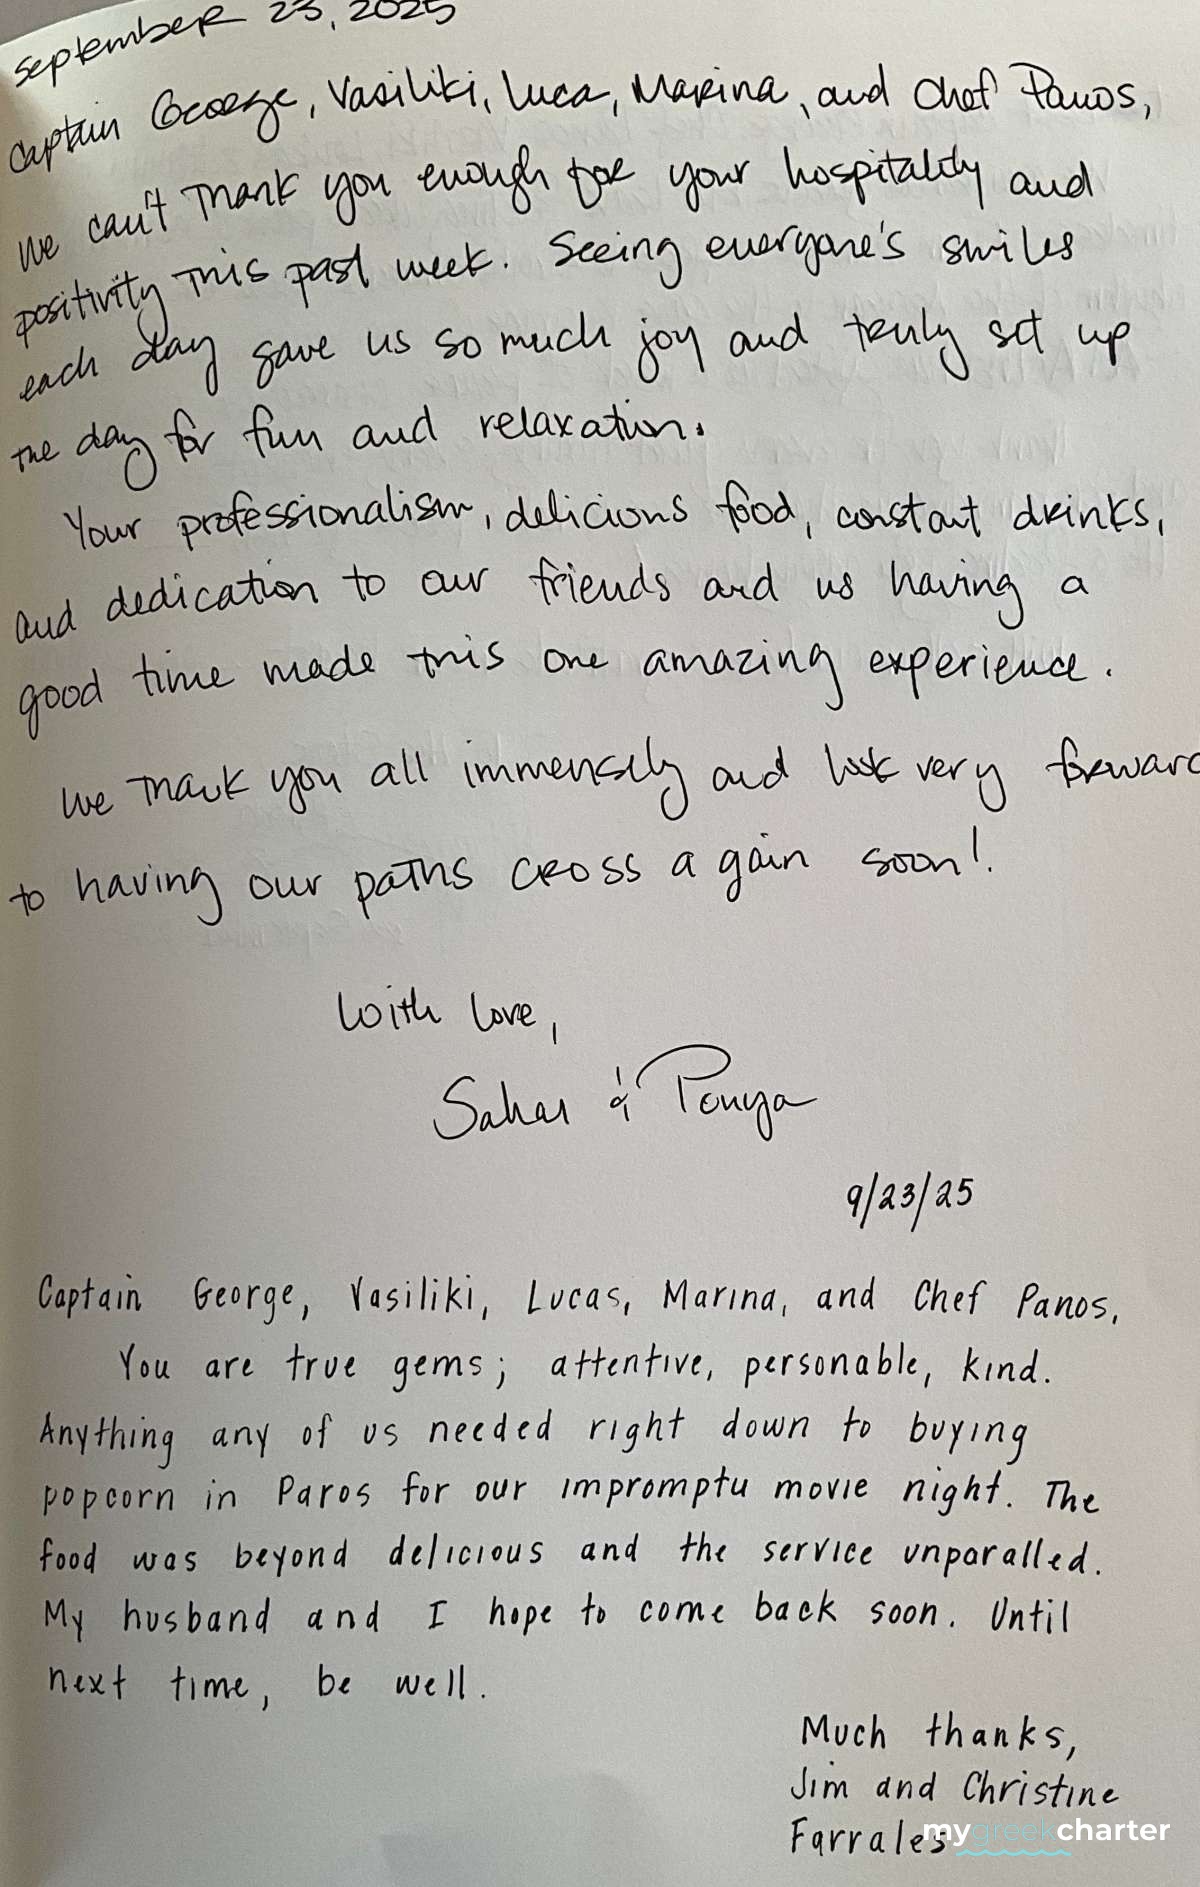 September 23, 2025
Captain George, Vasiliki, Luca, Marina, and Chef Panos,
We can't thank you enough for your hospitality and
positivity this past week. Seeing everyone's smiles
each day gave us so much joy and truly set up
the day for fun and relaxation.
Your professionalism, delicious food, constant drinks,
and dedication to our friends and us having a
good time made this one amazing experience.
We thank you all immensely and look very forward
to having our paths cross again soon!
With love,
Sahar & Pouya
9/23/25
Captain George, Vasiliki, Lucas, Marina, and Chef Panos,
You are true gems; attentive, personable, kind.
Anything any of us needed right down to buying
popcorn in Paros for our impromptu movie night. The
food was beyond delicious and the service unparalled.
My husband and I hope to come back soon. Until
next time, be well.
Much thanks,
Jim and Christine
Farrales
mygreekcharter